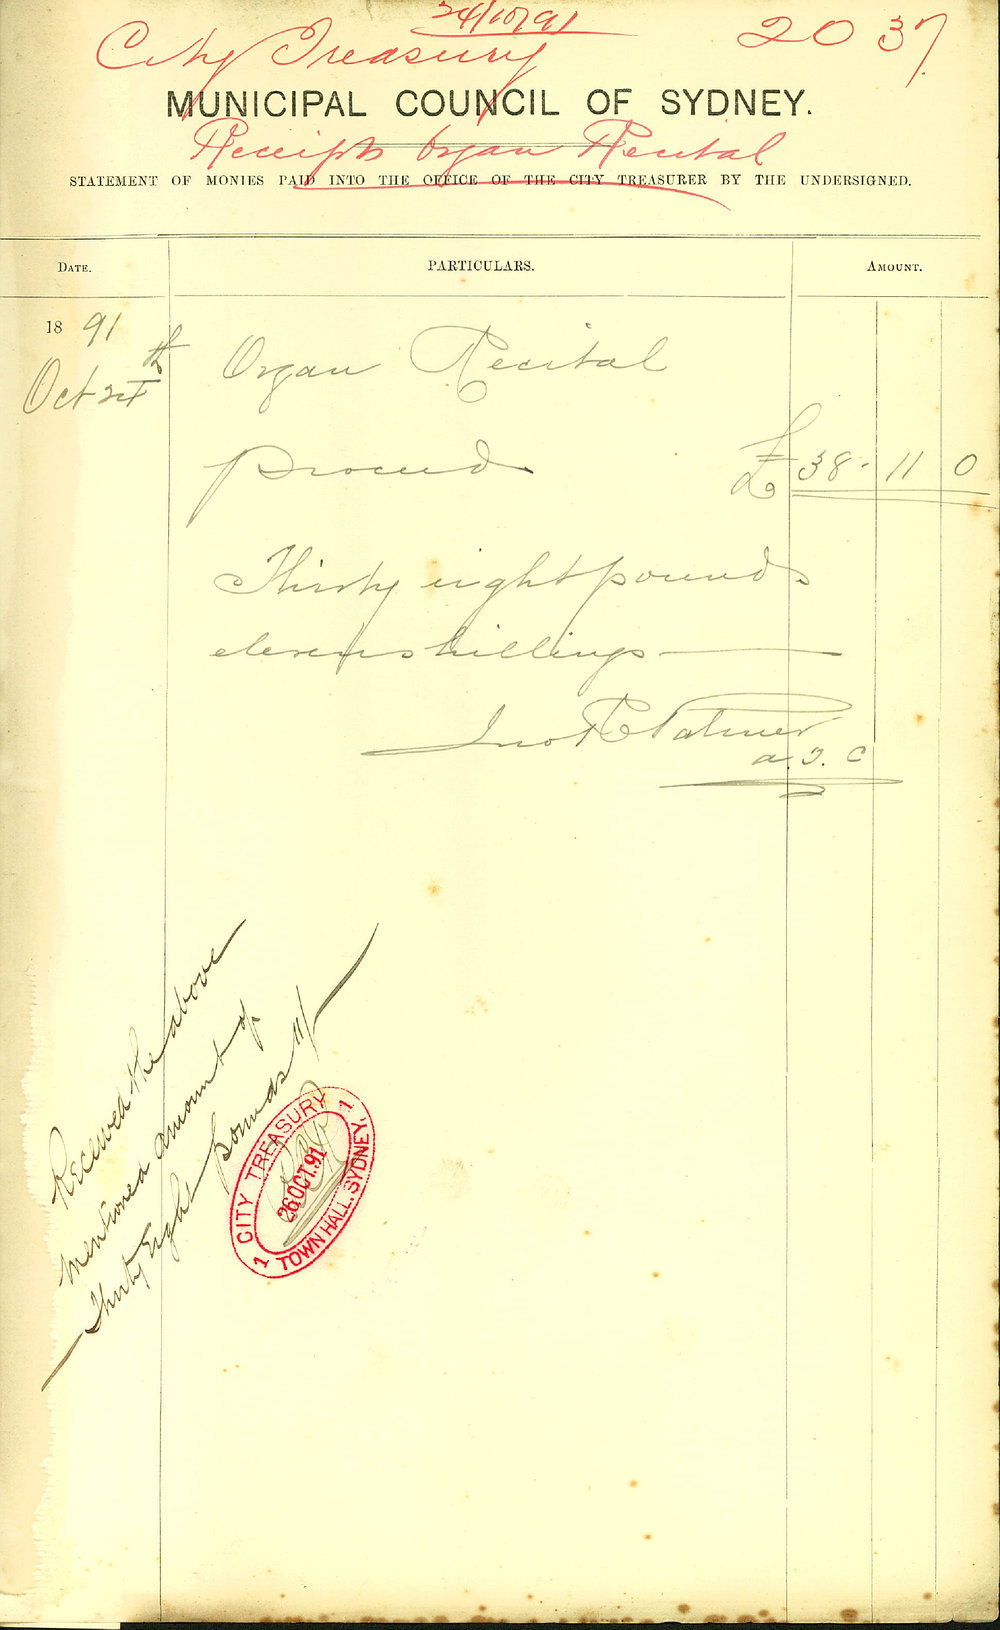 24/10/91
City Treasury
2037
MUNICIPAL COUNCIL OF SYDNEY.
Receipts Organ Recital
STATEMENT OF MONIES PAID INTO THE OFFICE OF THE CITY TREASURER BY THE UNDERSIGNED.
DATE. PARTICULARS. AMOUNT.
1891
Oct 24th Organ Recital
proceeds £38-11 0
Thirty eight pounds
eleven shillings
Jno R Palmer
a. T. C
Received the above
mentioned amount of
Thirty Eight pounds 11/
CITY TREASURY
26 OCT. 91
TOWN HALL. SYDNEY.
1 1